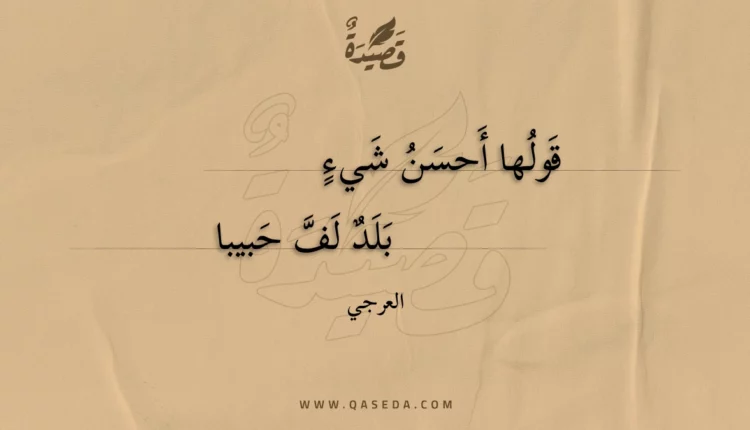 قَصِيدَةٌ
قَولُها أَحسَنُ شَيءٍ
بَلَدٌ لَفَّ حَبيبا
العرجي
WWW.QASEDA.COM